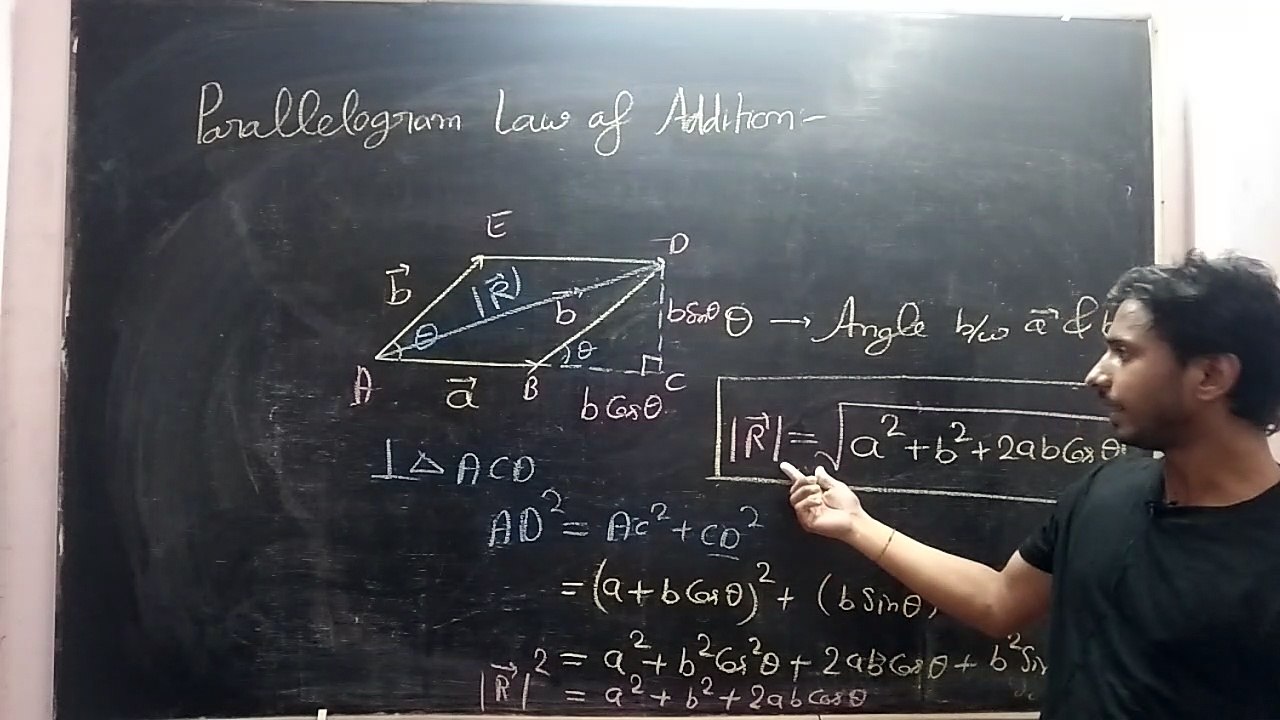 Parallelogram Law of Addition:-
E
D
b⃗
|R⃗|
b⃗
θ
θ
b Sinθ
θ → Angle b/w a⃗ & b
A
a⃗
B
C
b Cosθ
|R⃗| = √a² + b² + 2ab Cosθ
⊥ △ ACD
AD² = AC² + CD²
= (a + b Cosθ)² + (b Sinθ)
= a² + b² Cos²θ + 2ab Cosθ + b² Sin
|R⃗|² = a² + b² + 2ab Cosθ